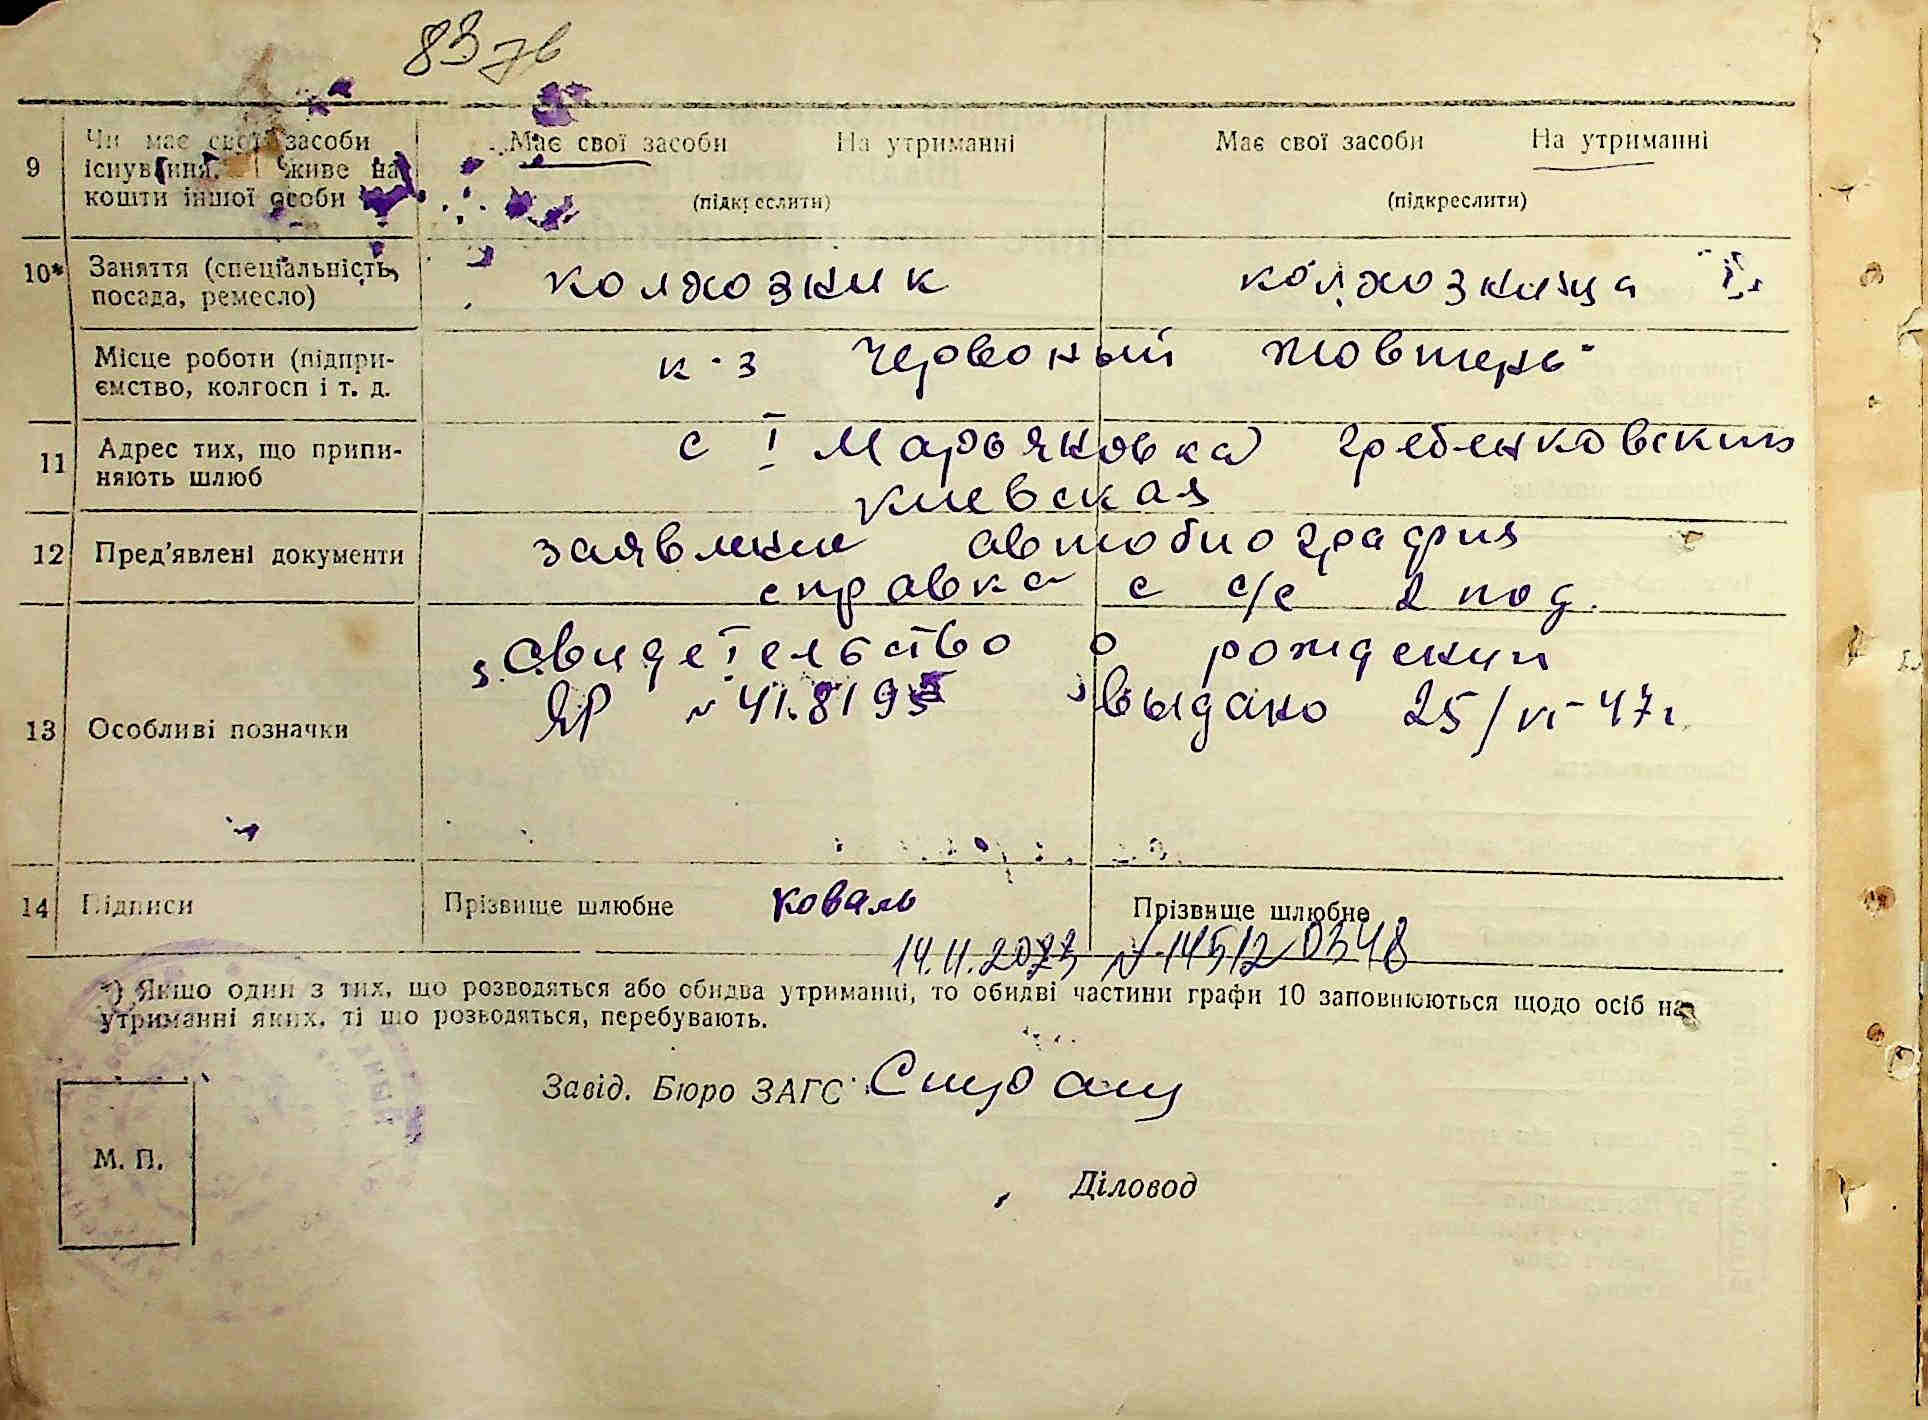 83 зв
9 Чи має свої засоби існування. і живе на кошти іншої особи
Має свої засоби На утриманні
(підкреслити)
Має свої засоби На утриманні
(підкреслити)
10* Заняття (спеціальність, посада, ремесло)
колхозник колхозница
Місце роботи (підпри-
ємство, колгосп і т. д.
к-з Червоный Жовтень
11 Адрес тих, що припи-
няють шлюб
с I Марьяновка Гребенковский
Киевская
12 Пред'явлені документи
заявление автобиография
справка с с/с 2 под.
13 Особливі позначки
Свидетельство о рождении
ЯР № 418195 выдано 25/VI-47г
14 Підписи
Прізвище шлюбне Коваль
Прізвище шлюбне
14.11.2023 № 14512 0348
*) Якшо один з тих, що розводяться або обидва утриманці, то обидві частини графи 10 заповнюються щодо осіб на
утриманні яких, ті що розводяться, перебувають.
Завід. Бюро ЗАГС
М. П.
Діловод